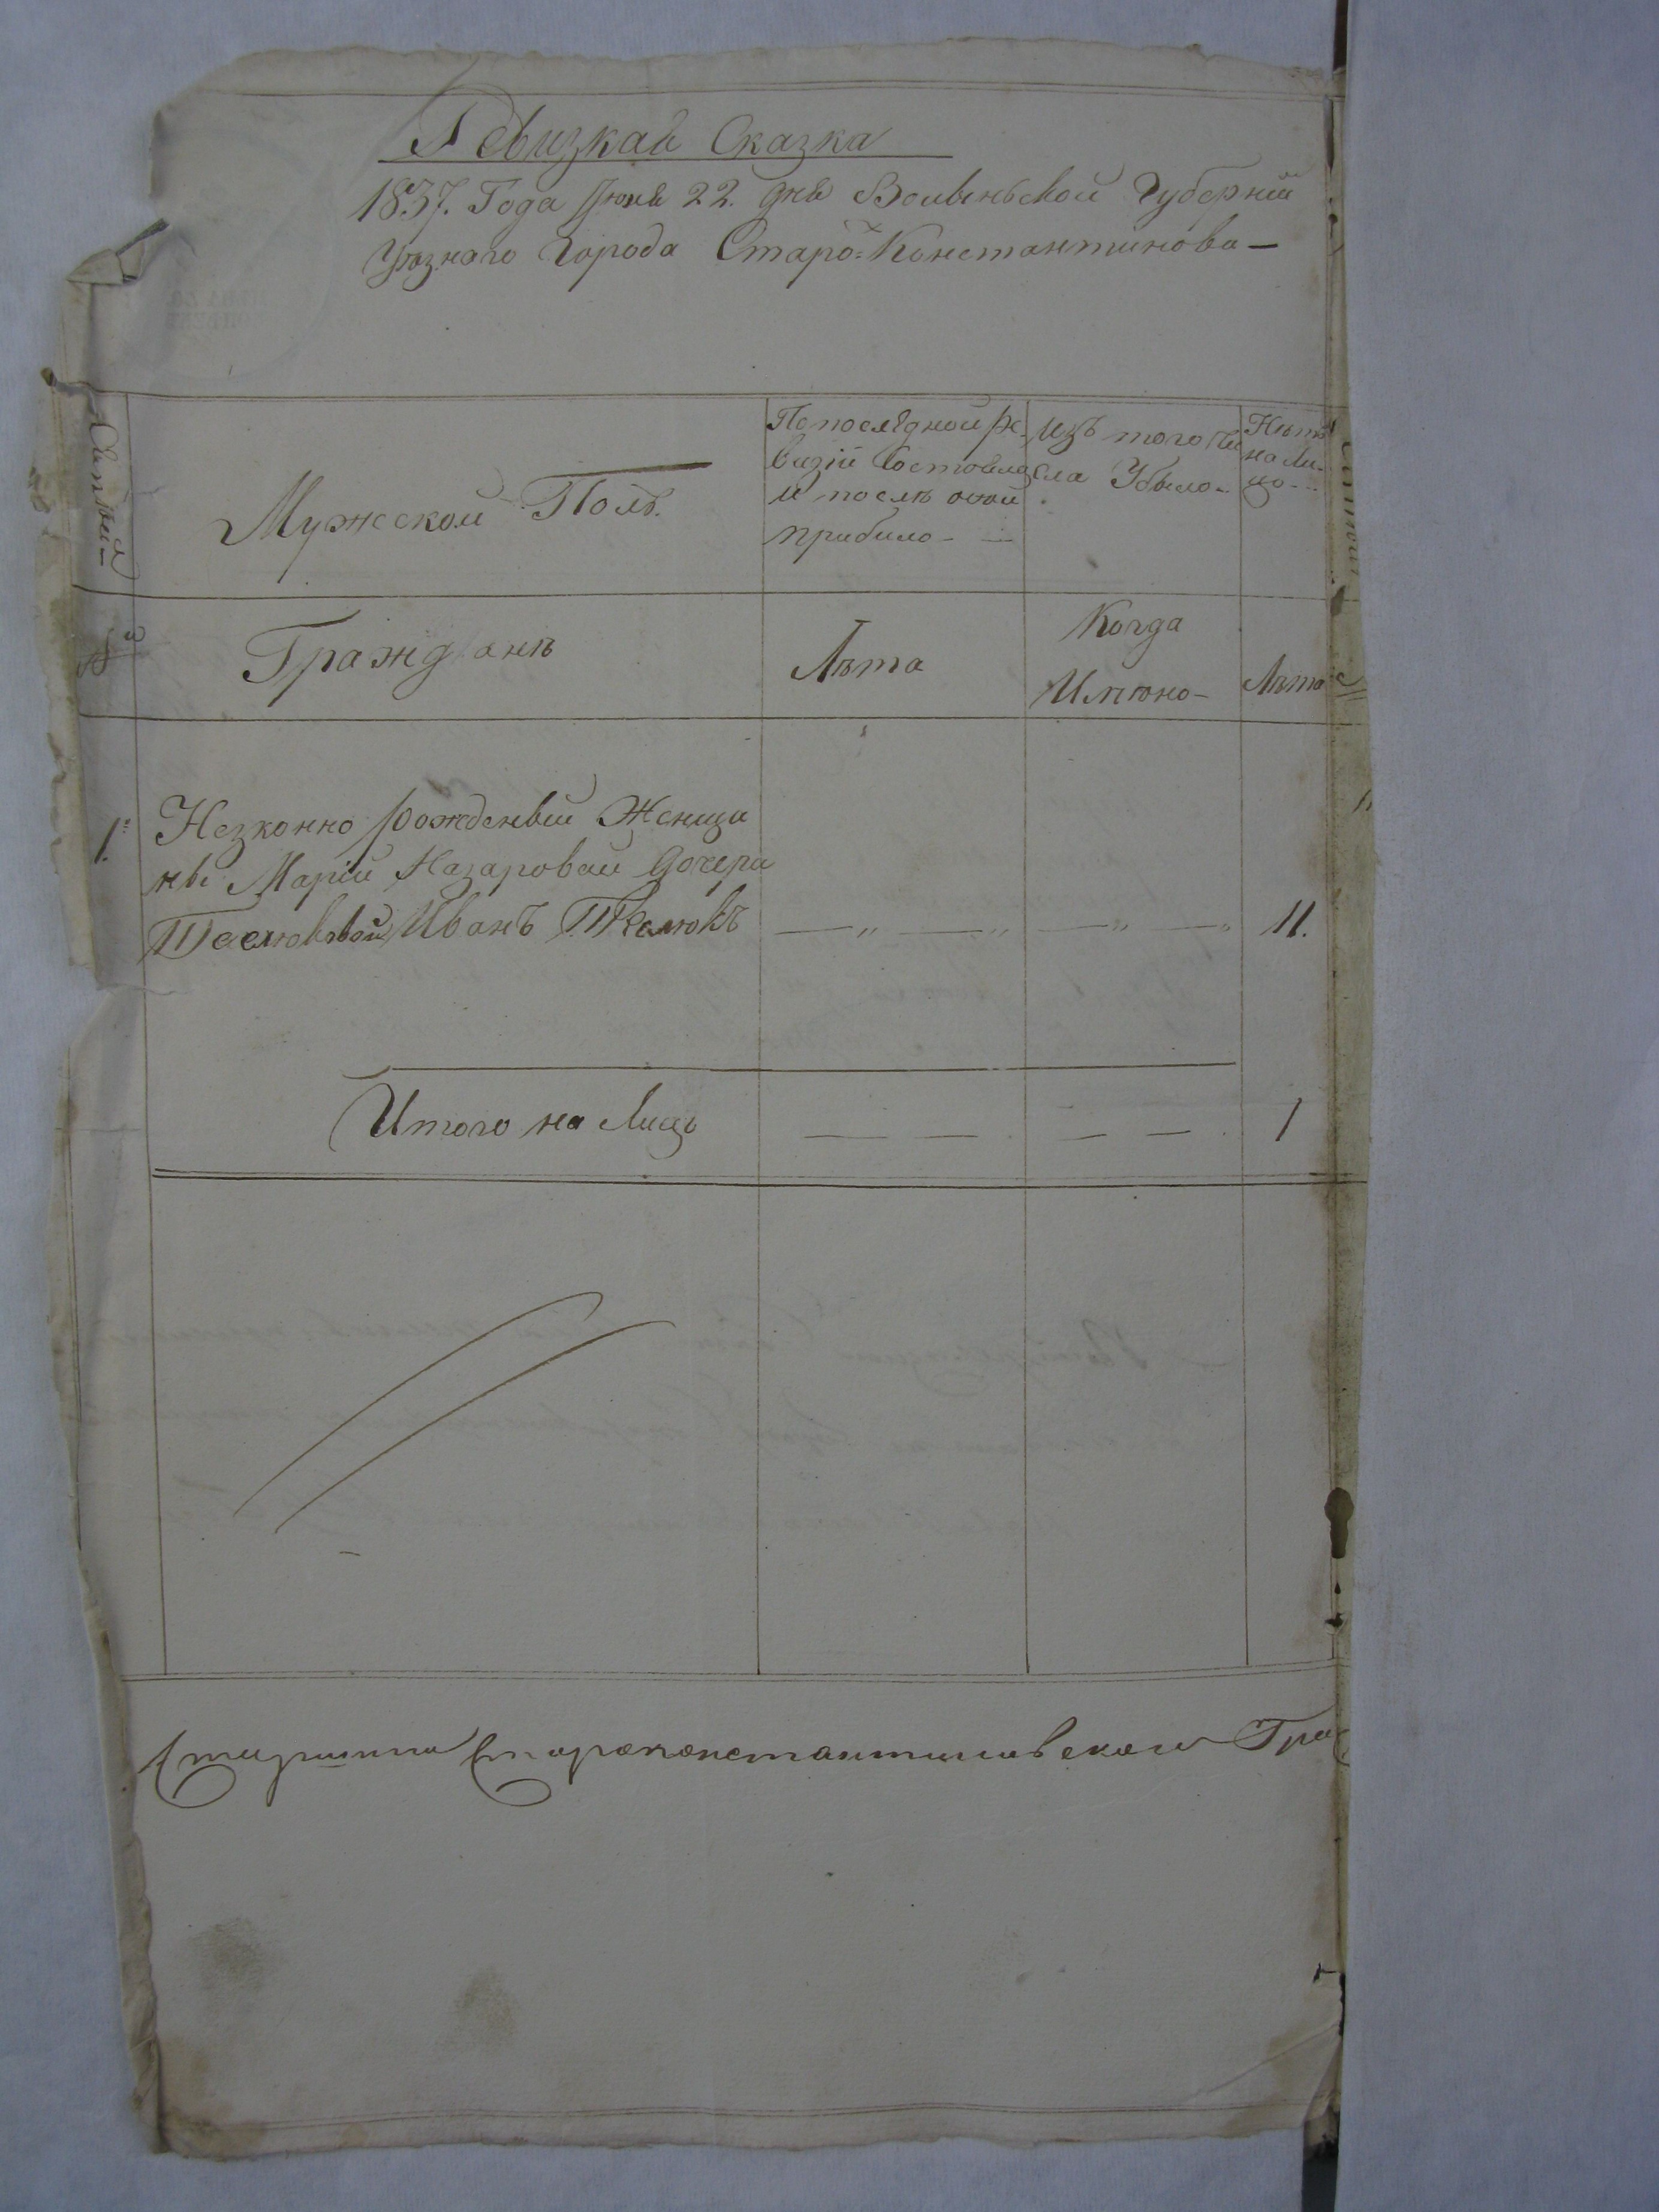 Ревизкая Сказка
1837. Года Июня 22. дня Волыньской Губернии
Уѣзнаго Города Старо=Константинова—
Мужеской Полъ.
По последной Ре-
визіи Состояло
и послѣ оной
прибыло-
Изъ того чи
сла Убыло-
Нынѣ
на Ли-
цо-
№
Гражданъ
Лѣта
Когда
Имянно-
Лѣта
1. Незконно рожденый Женщи
ны Маріи Назаровой дочери
Иванъ 11.
Итого на Лицо 1
Староконстантиновскаго Гра